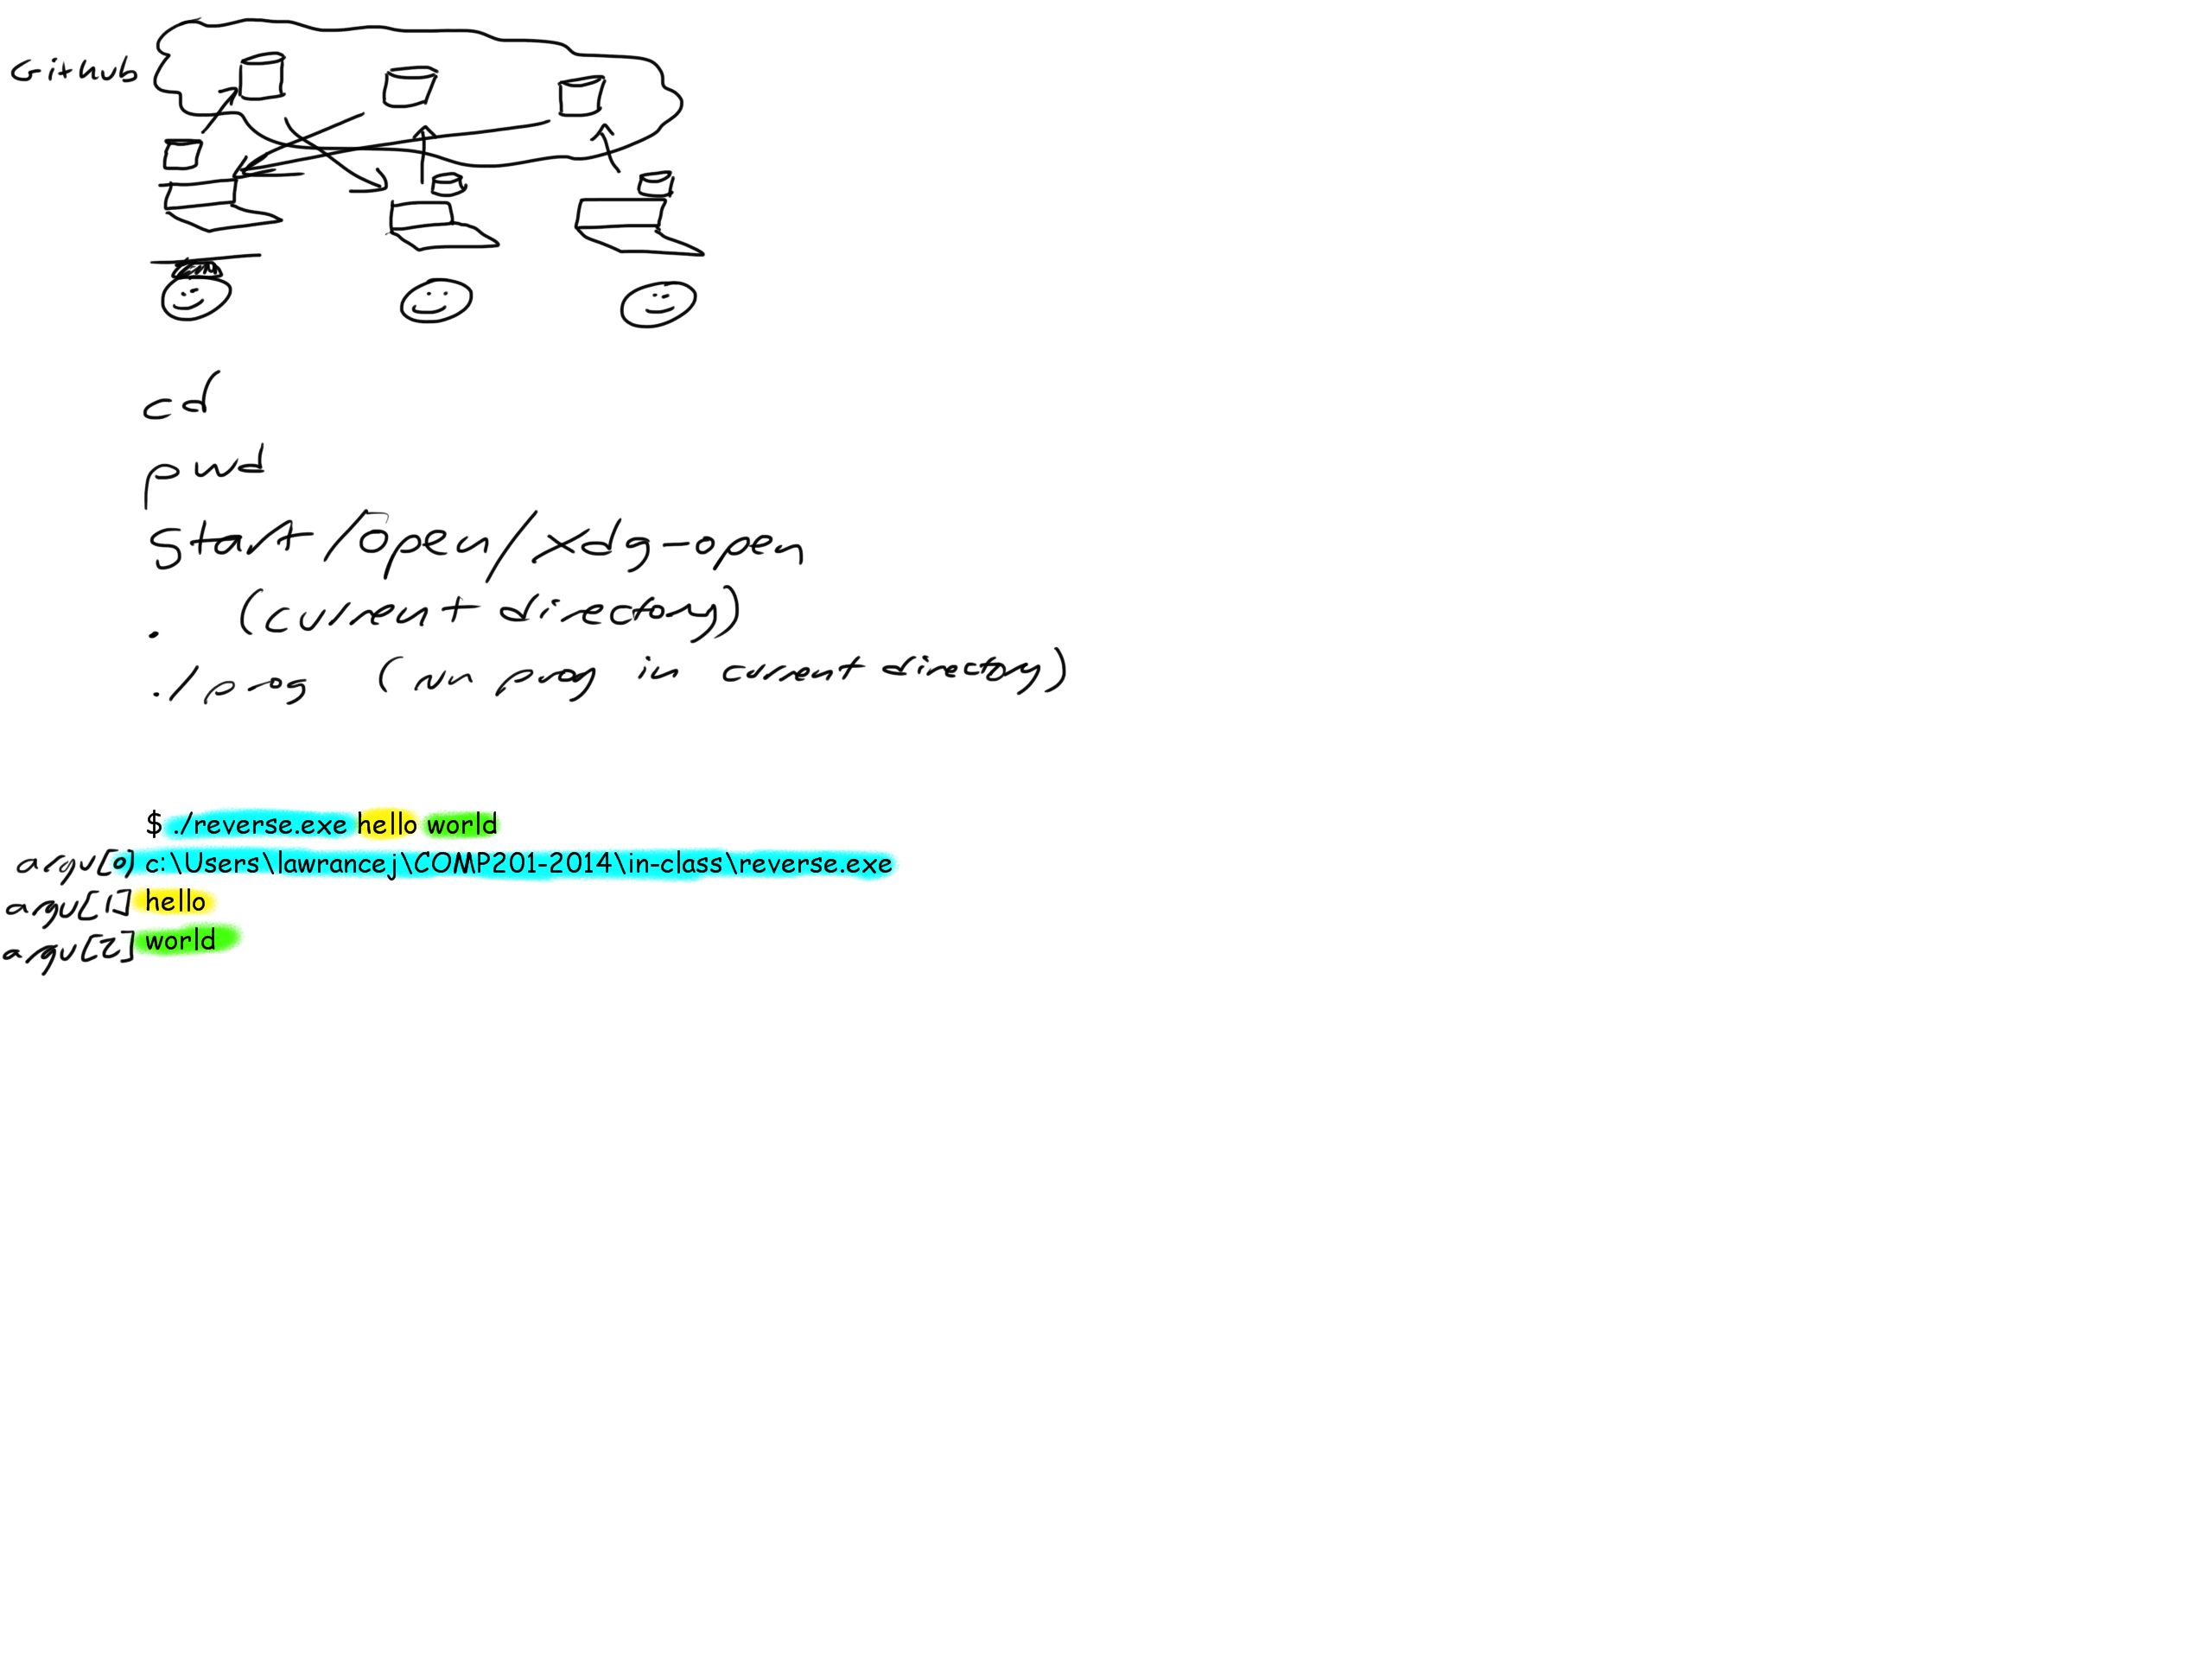 Github
cd
pwd
start/open/xdg-open
. (current directory)
./prog (run prog in current directory)
$ ./reverse.exe hello world
argv[0] c:\Users\lawrancej\COMP201-2014\in-class\reverse.exe
argv[1] hello
argv[2] world